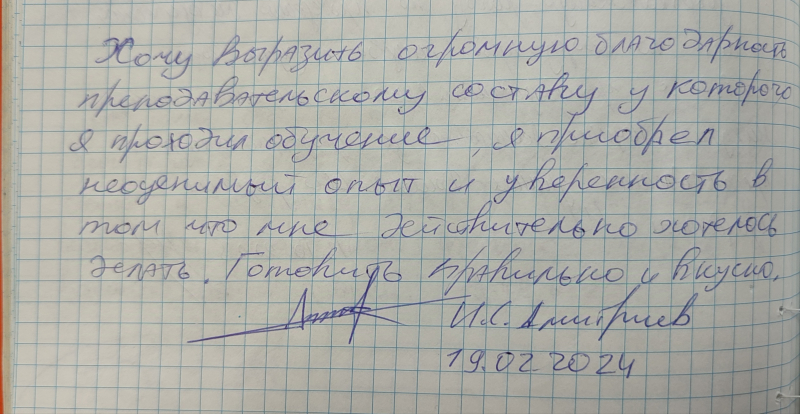 Хочу выразить огромную благодарность
преподавательскому составу у которого
я проходил обучение, я приобрел
неоценимый опыт и уверенность в
том что мне действительно хотелось
делать. Готовить правильно и вкусно.
И.С. Дмитриев
19.02.2024